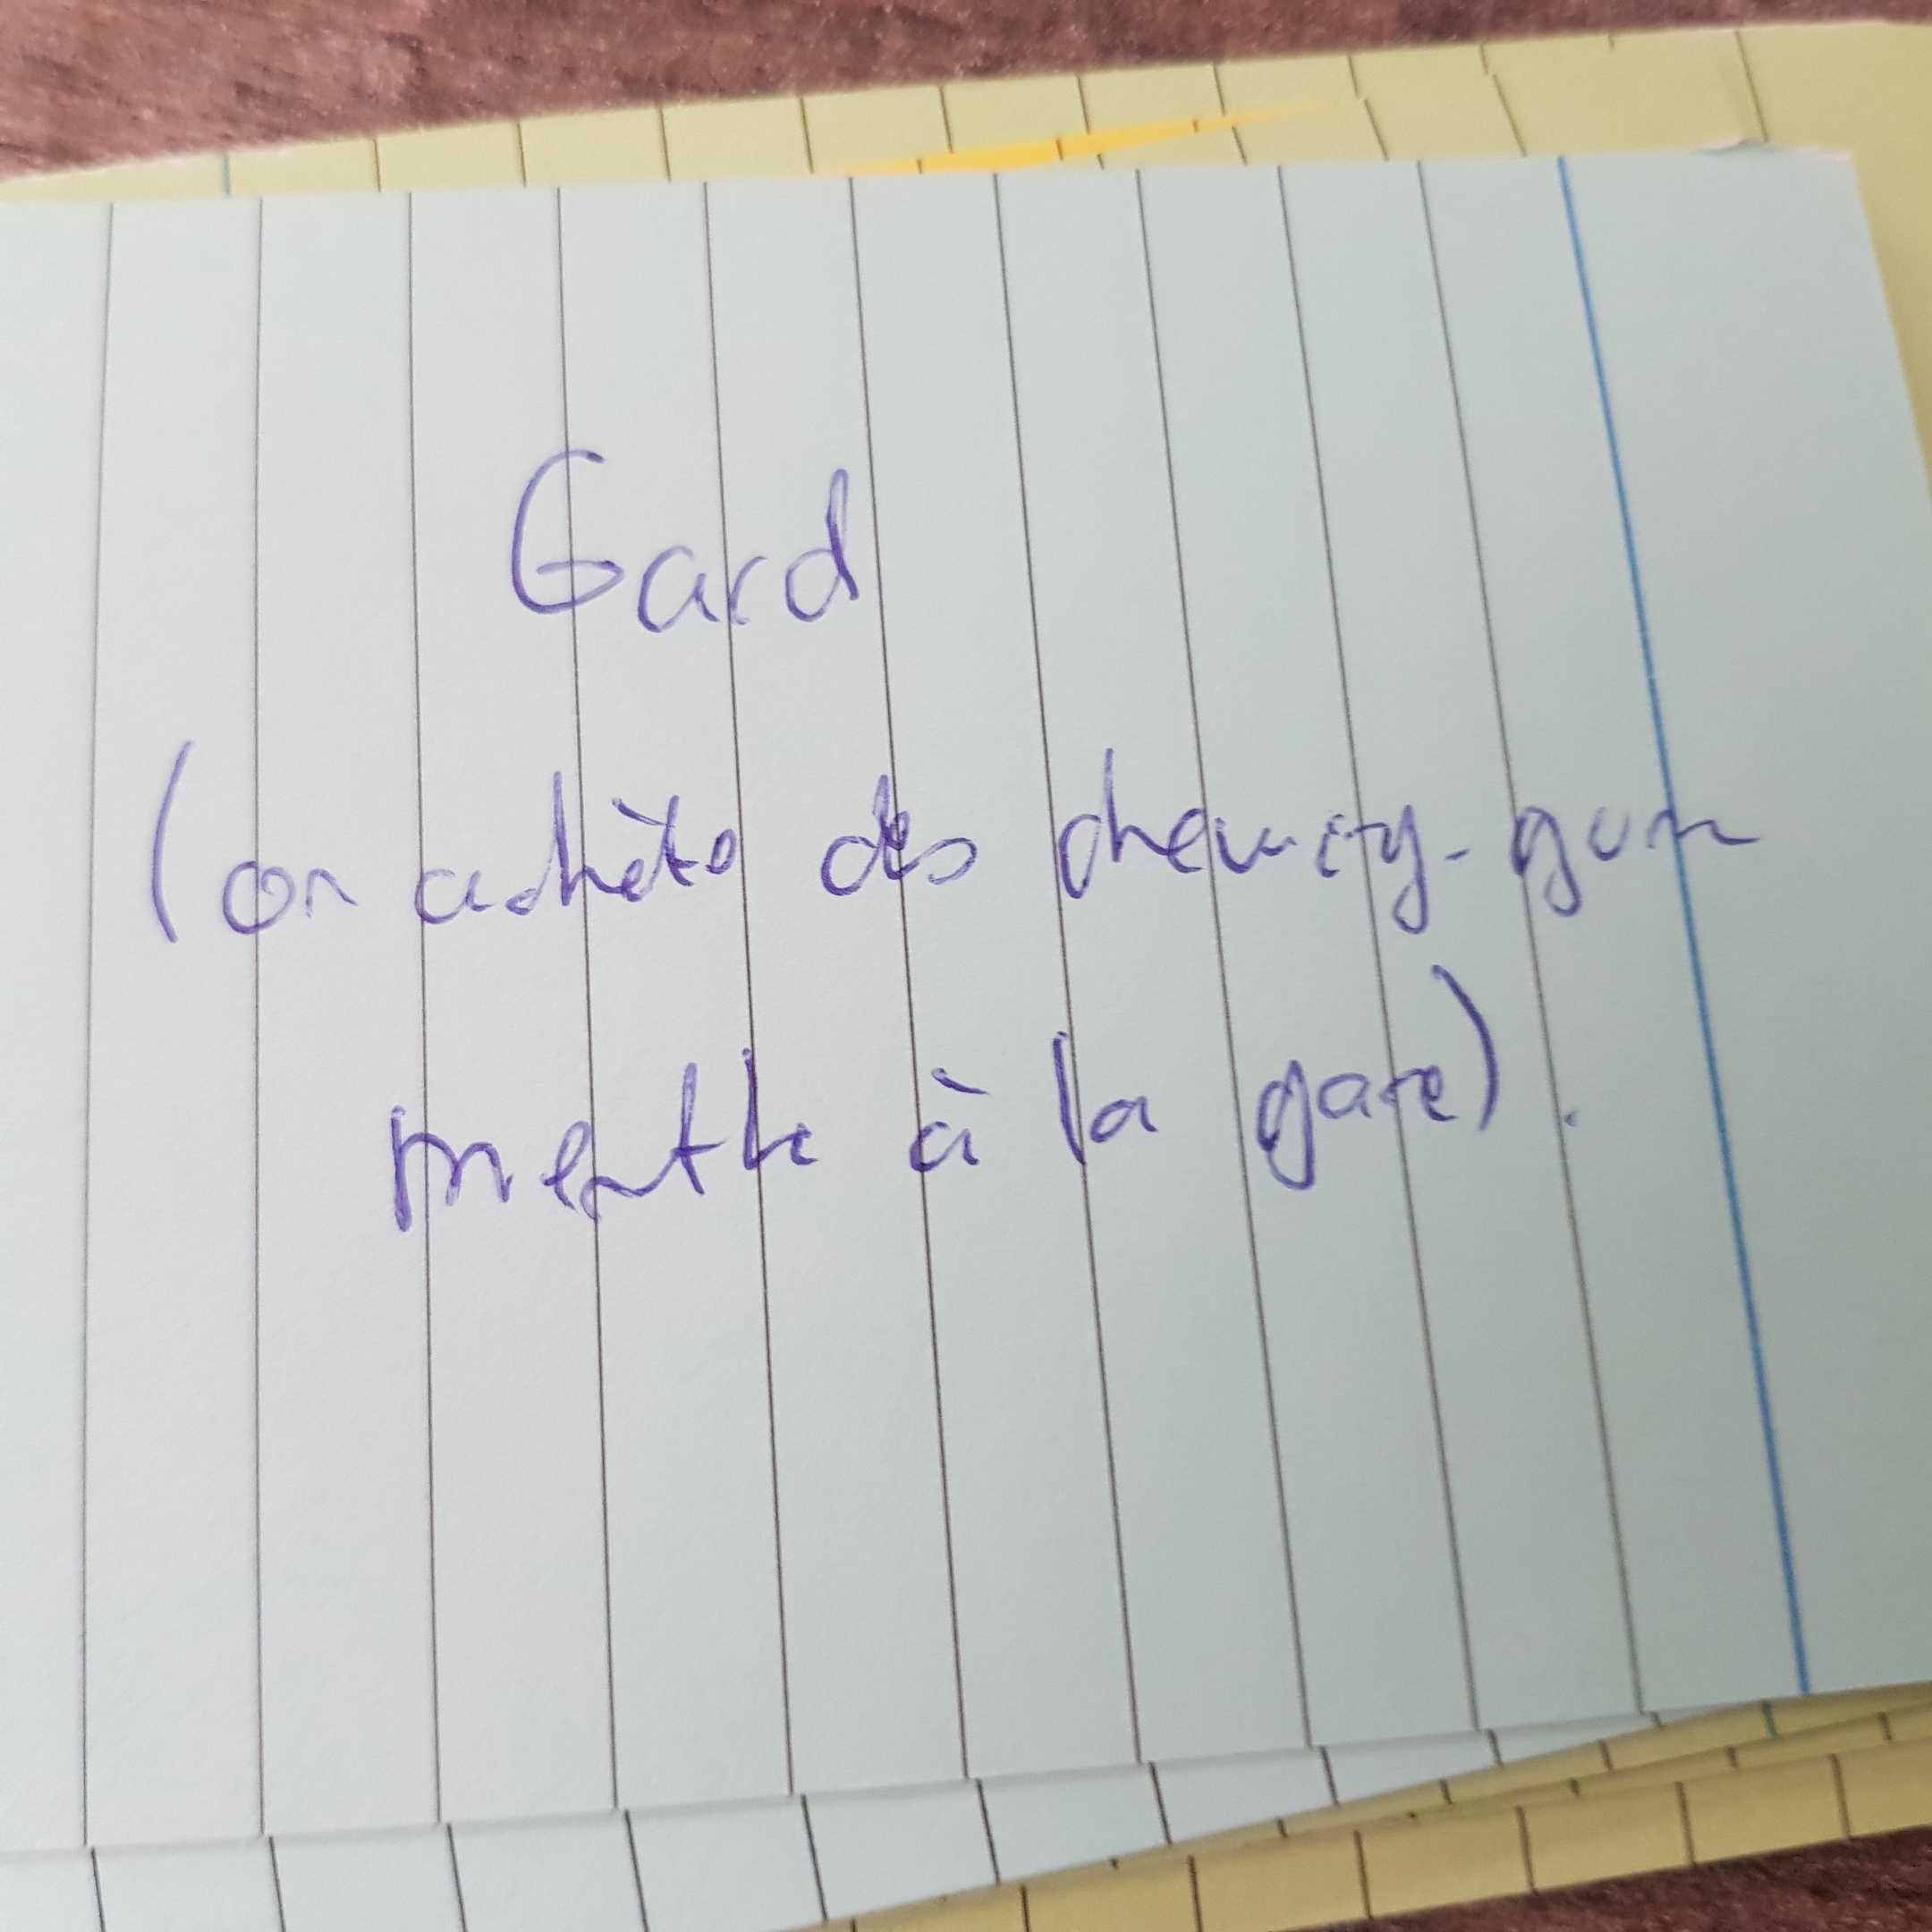 Gard
(on achète des chewing-gum
menthe à la gare).